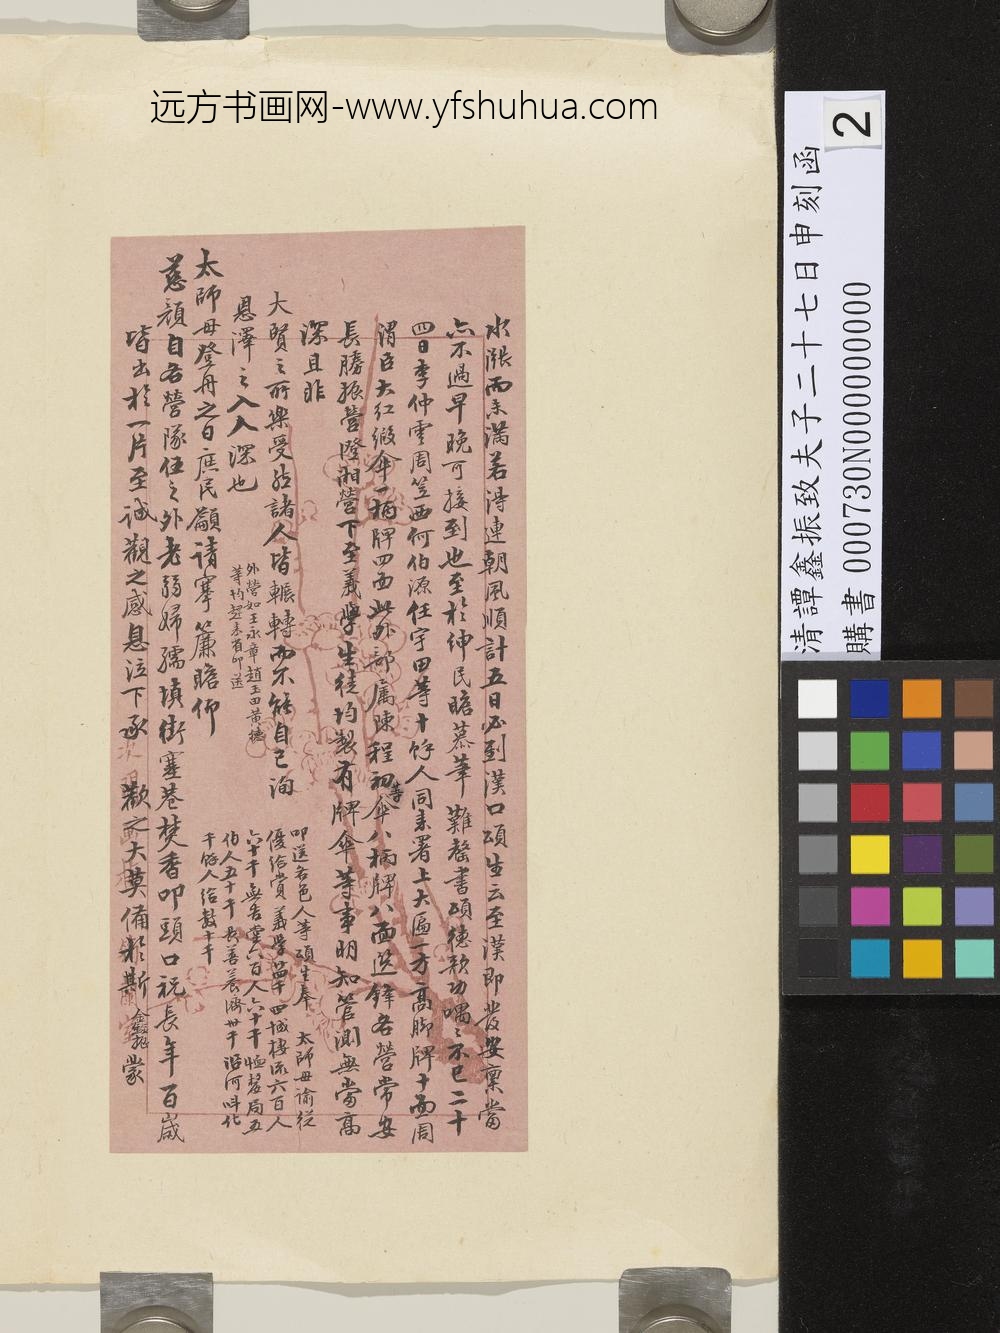 远方书画网-www.yfshuhua.com
2
清譚鑫振致夫子二十七日申刻函
購書 000730N000000000
水漲而未滿若得連朝風順計五日必到漢口頌生云至漢即發安稟當
亦不過早晚可接到也至於紳民瞻慕筆難罄書頌德歌功喁喁不已二十
四日李仲雲周笠西何伯源任宇田等十餘人同來署上大匾一方高脚牌十面周
渭臣大紅緞傘一柄牌四面此外部屬陳程初等傘八柄牌八面選鋒各營常安
長勝振營隆湘營下至義學生徒均製有牌傘等事明知管測無當高
深且非
大賢之所樂受然諸人皆輾轉而不能自已洵
恩澤之入人深也
外營如王永章趙玉田黃德
等均趕來省叩送
太師母登舟之日庶民籲請搴簾瞻仰
慈顏自各營隊伍之外老弱婦孺填街塞巷焚香叩頭口祝長年百歲
皆出於一片至誠觀之感息泣下承
歡之大莫備於斯鑫振蒙
叩送各色人等頌生奉 太師母諭從
優給賞義學 四城棲流六百人
六十千無告堂六百人六十千恤嫠局五
伯人五十千長善養濟卅千沿河叫化
千餘人給數十千